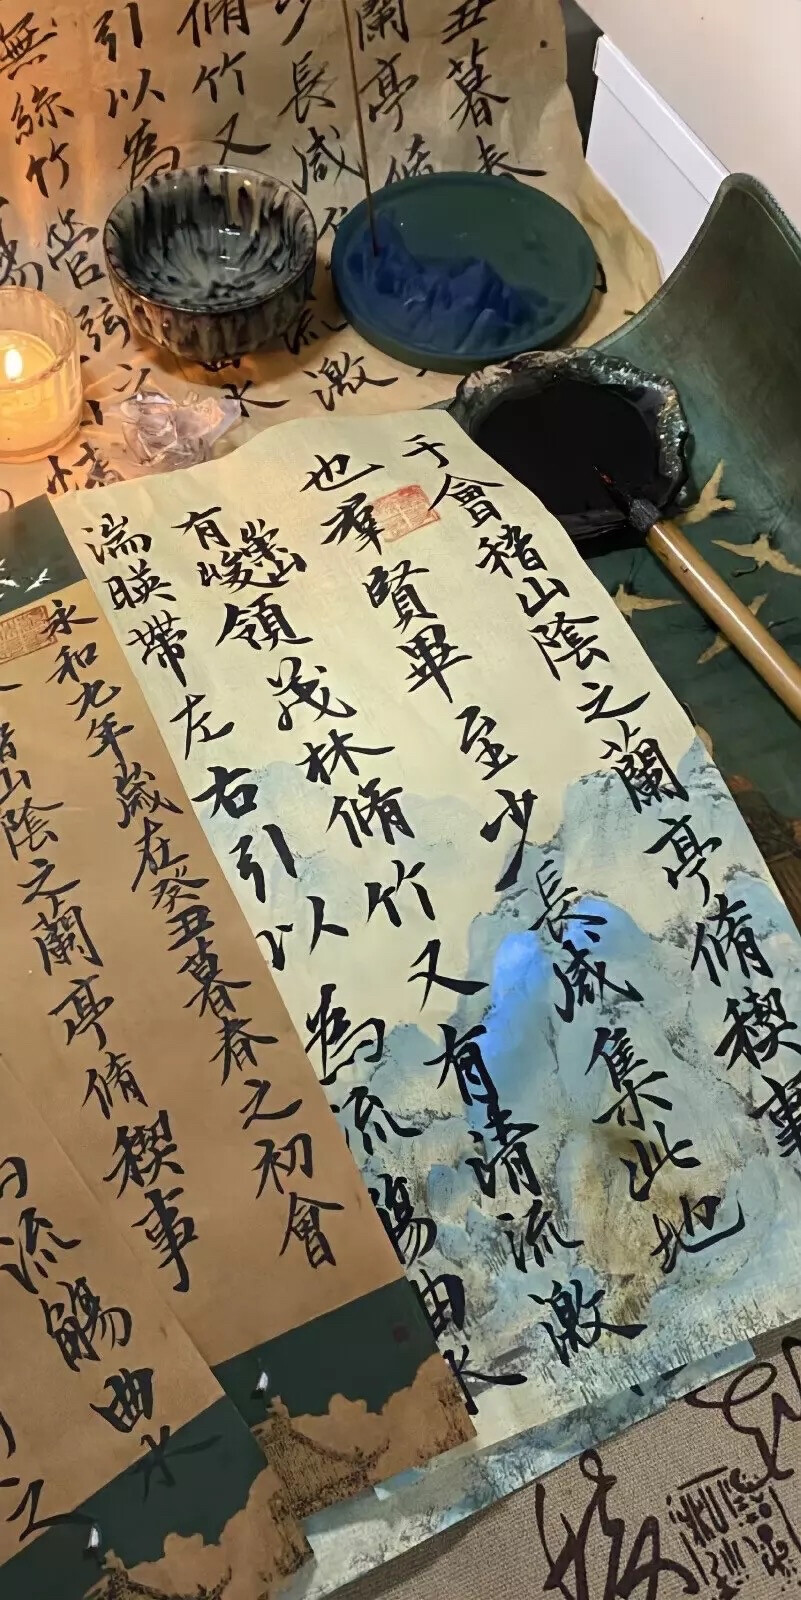 丑暮春
蘭亭脩
少長咸
流激
脩竹又
引以為
水
無絲竹管弦之
情
于會稽山陰之蘭亭脩稧事
也羣賢畢至少長咸集此地
有崇山峻領茂林脩竹又有清流激
湍暎帶左右引以為流觴曲水
永和九年歲在癸丑暮春之初會
稽山陰之蘭亭脩稧事
流觴曲水
之